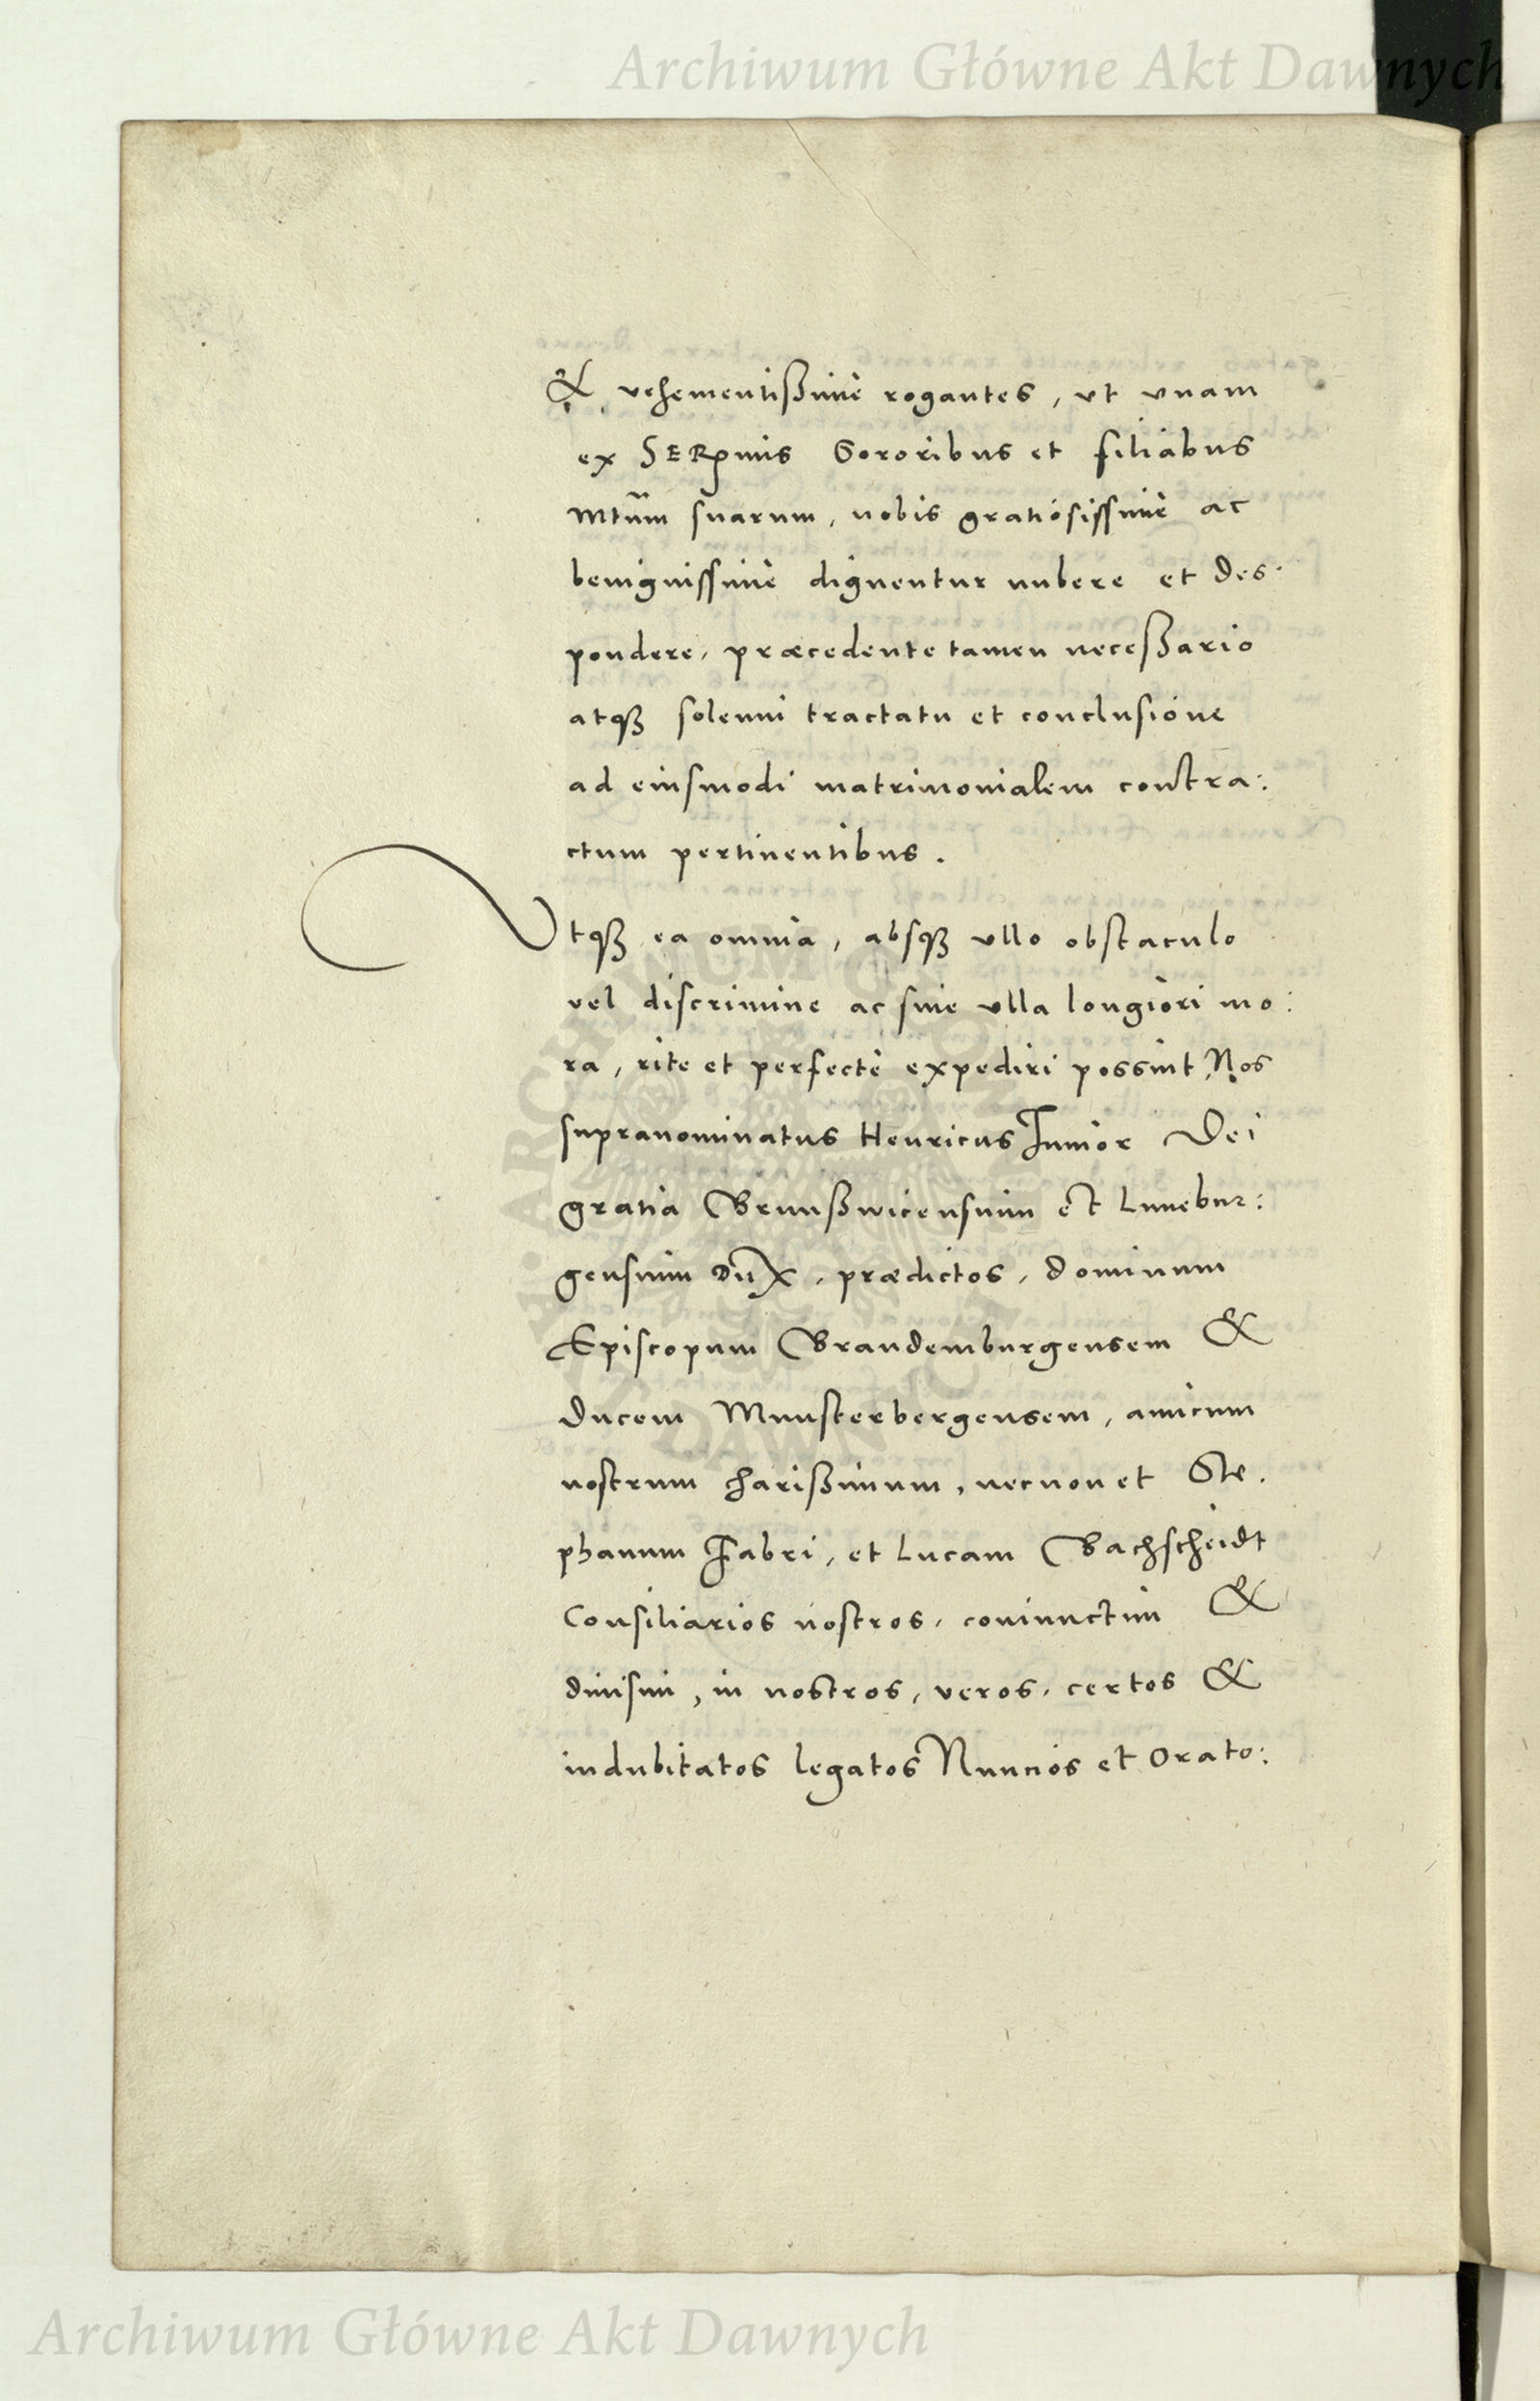 Archiwum Główne Akt Dawnych
& vehementißimè rogantes, vt vnam
ex SERpmis Sororibus et filiabus
Mtum suarum, nobis gratiosissimè ac
benignissimè dignentur nubere et des-
pondere, præcedente tamen neceßario
atqß solenni tractatu et conclusione
ad eiusmodi matrimonialem contra:
ctum pertinentibus.
Vtqß ea omnia, absqß vllo obstaculo
vel discrimine ac sine vlla longiori mo:
ra, rite et perfectè expediri possint Nos
supranominatus Henricus Iunior Dei
gratia Brunßwicensium et Lunebur:
gensium Dux, prædictos, dominum
Episcopum Brandemburgensem &
Ducem Munsterbergensem, amicum
nostrum charißimum, necnon et Ste.
phanum Fabri, et Lucam Bachscheidt
Consiliarios nostros, coniunctim &
diuisim, in nostros, veros, certos &
indubitatos legatos Nuncios et Orato:
Archiwum Główne Akt Dawnych